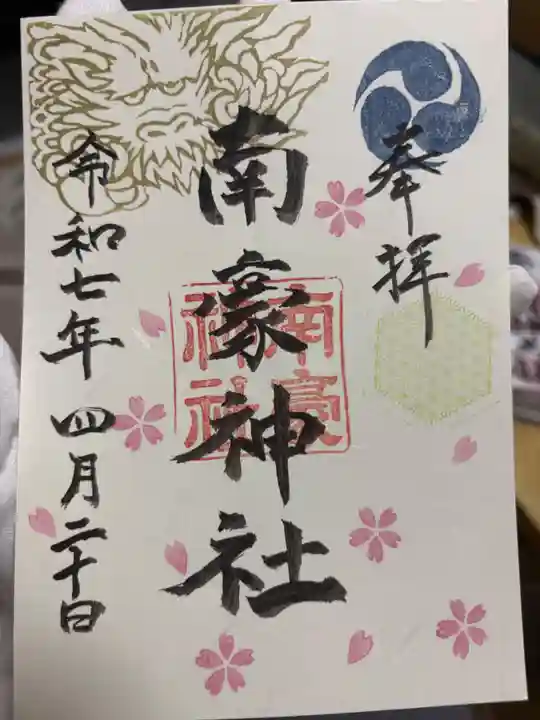 奉拝
南豪神社
南豪神社
令和七年四月二十日